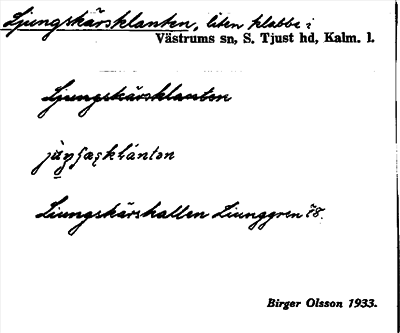 Ljungskärsklanten, liten klabbe i
Västrums sn, S. Tjust hd, Kalm. l.
Ljungskärsklanten
Liungskärskallen Liunggren 78.
Birger Olsson 1933.